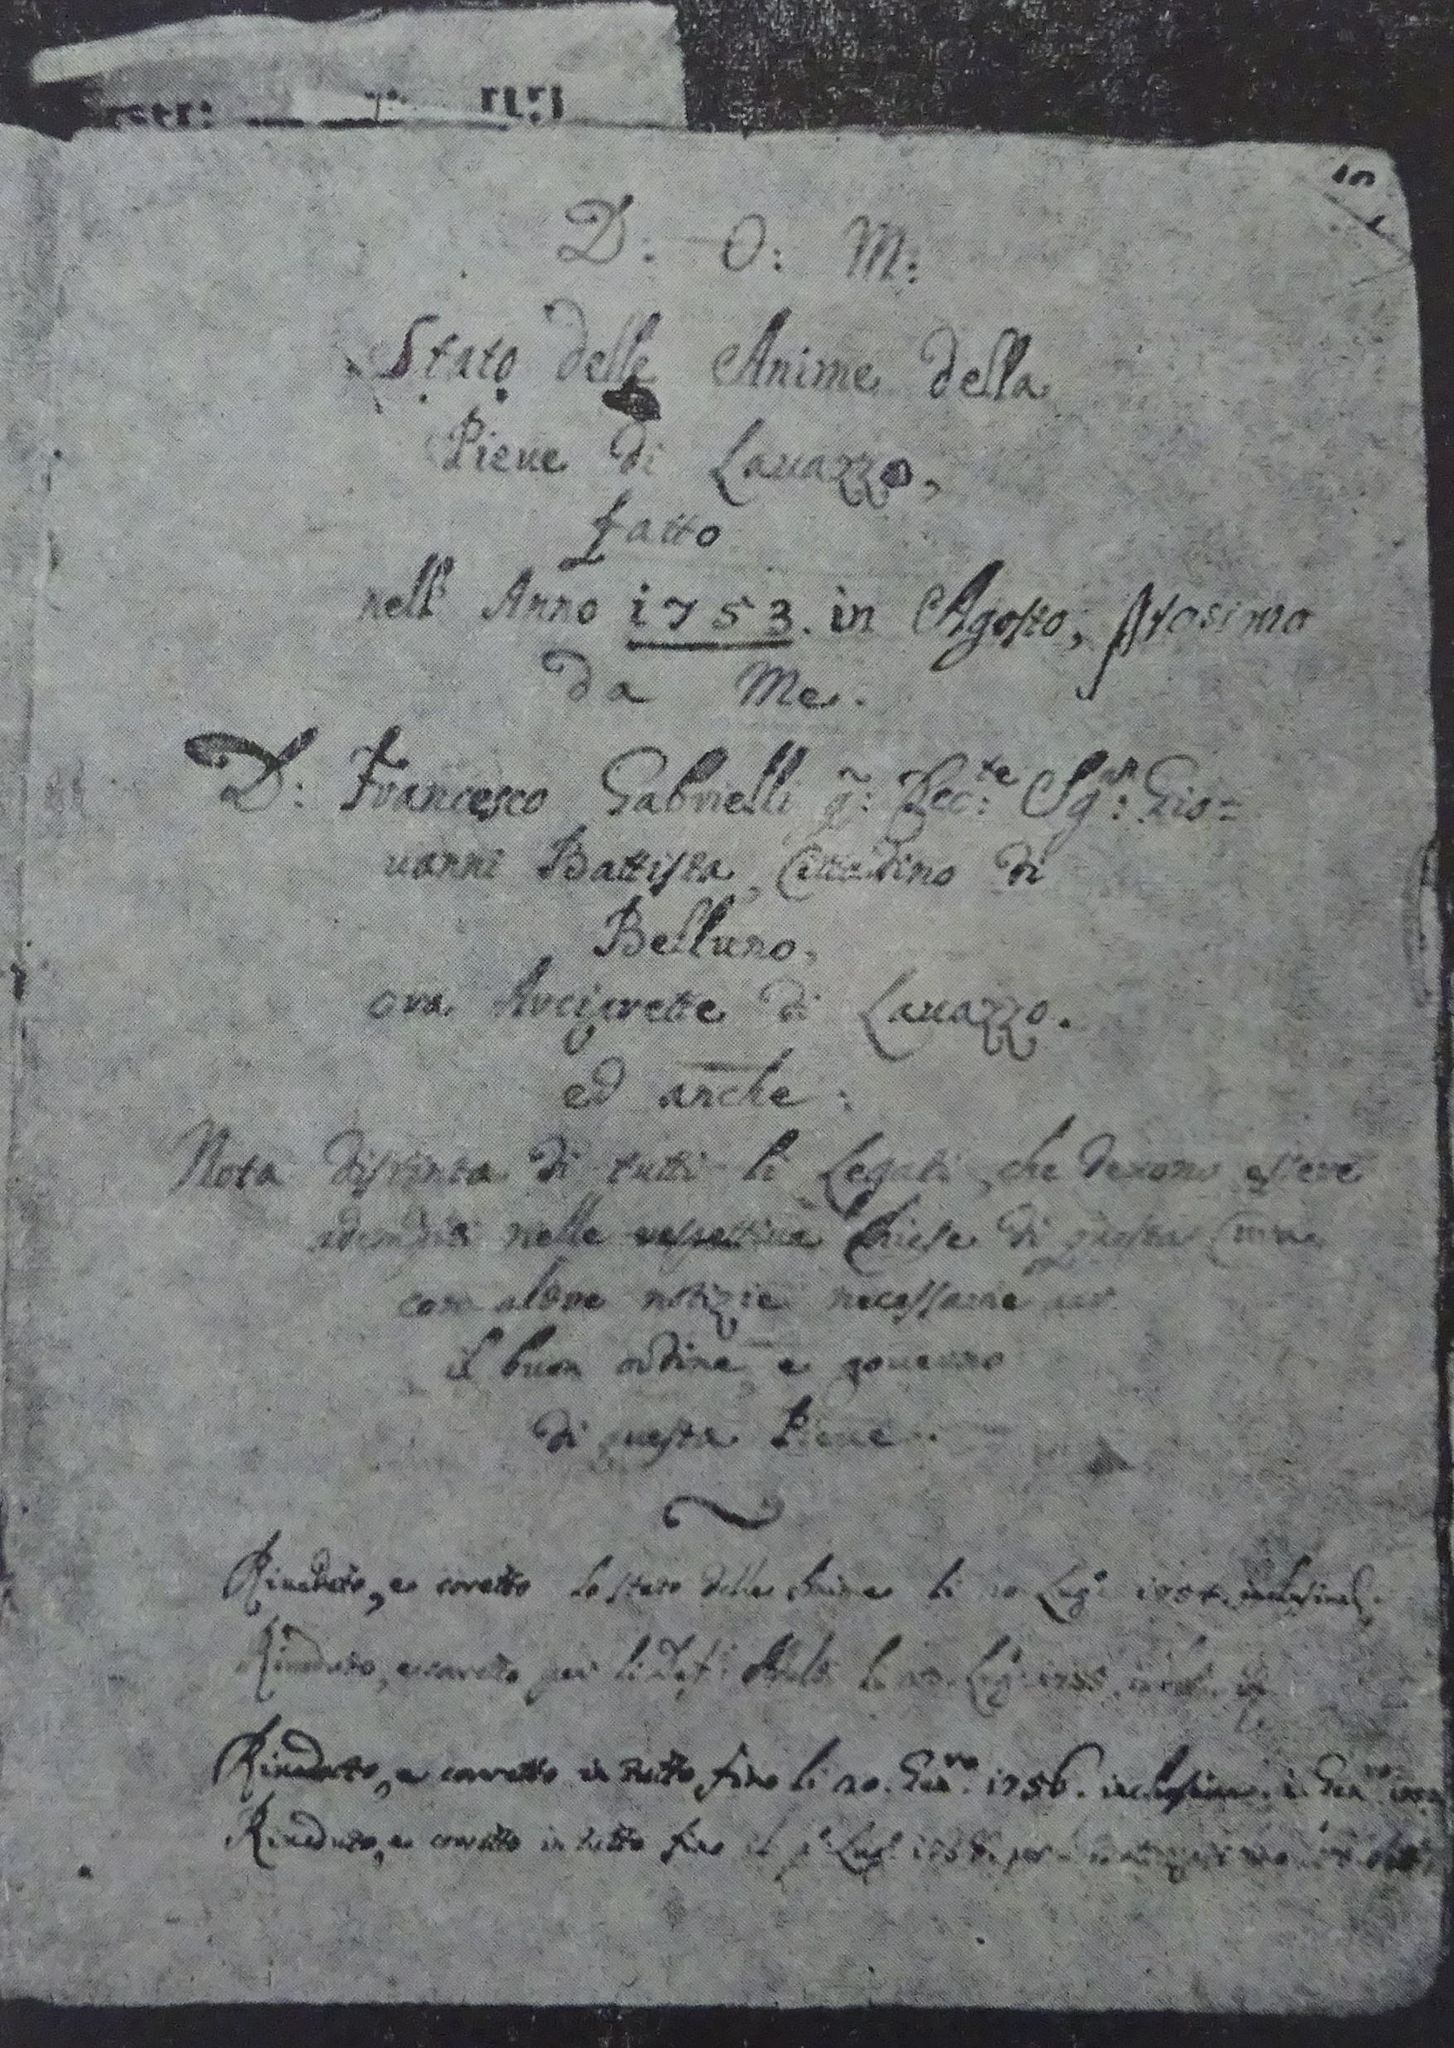 D: O: M:
Stato delle Anime della
Pieue di Lauazzo,
fatto
nell' Anno 1753. in Agosto, prosimo
da Me.
D: Francesco Gabrielli q: Ecc:te Sg:r Gio=
uanni Battista, Cittadino di
Belluno,
ora Arciprette di Lauazzo.
ed anche:
Nota distinta di tutti li Legati, che deuono essere
adempiti nelle respettiue Chiese di questa Pieue
con altre notizie necessarie per
il buon ordine e gouerno
di questa Pieue.
Riueduto, e coretto lo stato delle Anime li 20 Lug.o 1754.
Riueduto, e coretto per li 20. Lug.o 1755.
Riueduto, e corretto in tutto fino li 20. Gen.ro 1756. inclusiue.
Riueduto, e corretto in tutto fino Lug.o